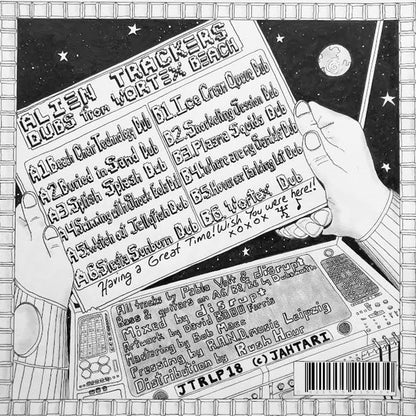 ALIEN TRACKERS
DUBS from VORTEX BEACH
A1. Beach Chair Technology Dub
A2. Buried in Sand Dub
A3. Splish Splash Dub
A4. Swimming with Dub
A5. Watch out Jellyfish Dub
A6. Static Sunburn Dub
B1. Ice Cream Queue Dub
B2. Snorkeling Session Dub
B3. Squids Dub
B4. Where are my Sandals Dub
B5. Reverse Parking Lot Dub
B6. Vortex Dub
Having a Great Time! Wish You were here!!
xoxox
All tracks by Pablo Volt & disrupt
Bass & guitars on by
Mixed by disrupt
Artwork by David Ferris
Mastering by Bob Macc
Pressing by R.A.N.D. music Leipzig
Distribution by Rush Hour
JTRLP18 (c) JAHTARI